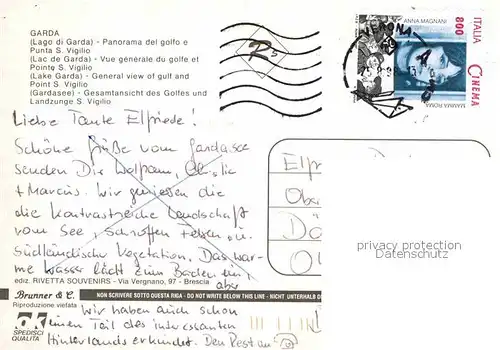 GARDA
(Lago di Garda) - Panorama del golfo e
Punta S. Vigilio
(Lac de Garde) - Vue générale du golfe et
Pointe S. Vigilio
(Lake Garda) - General view of gulf and
Point S. Vigilio
(Gardasee) - Gesamtansicht des Golfes und
Landzunge S. Vigilio
VERONA
ANNA MAGNANI
800
ITALIA
CINEMA
MAMMA ROMA
Liebe Tante Elfriede!
Schöne Grüße vom Gardasee
senden Dir Wolfram,
+ Marcus. Wir geniessen die
die kontrastreiche Landschaft
vom See, schroffen Felsen u.
südländische Vegetation. Das war-
me Wasser lädt zum Baden ein,
aber
ediz. RIVETTA SOUVENIRS - Via Vergnano, 97 - Brescia
Elfr
privacy protection
Datenschutz
Brunner & C.
NON SCRIVERE SOTTO QUESTA RIGA - DO NOT WRITE BELOW THIS LINE - NICHT UNTERHALB D
Riproduzione vietata
wir haben auch schon
einen Teil des interessanten
SPEDISCI
QUALITÀ
Hinterlands erkundet. Den Rest an